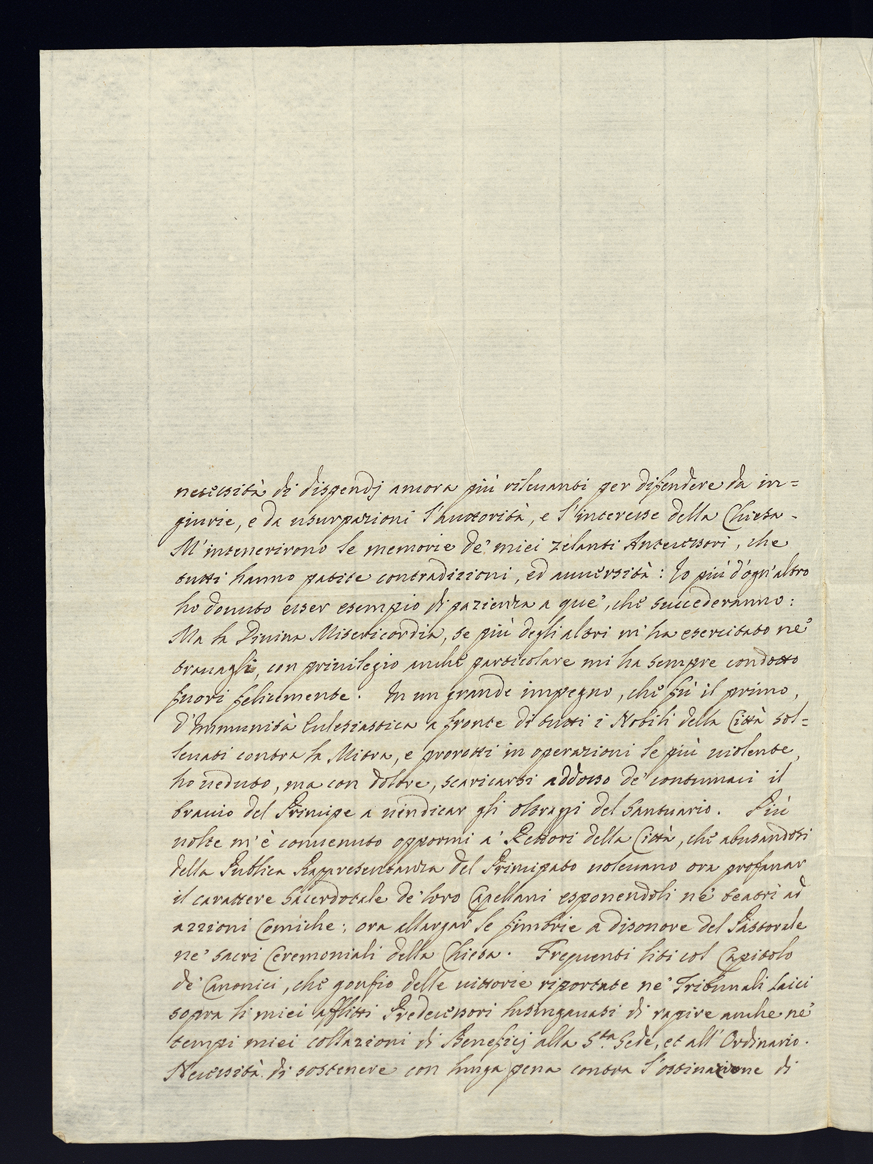 necessità di dispendj ancora più rileuanti per difendere da in=
giurie, e da usurpazioni l'auttorità, e l'interesse della Chiesa.
M'intenerirono le memorie de' miei zelanti Antecessori, che
tutti hanno patite contradizioni, ed auuersità: Io più d'ogn'altro
ho douuto esser esempio di pazienza a que', che succederanno:
Ma la Diuina Misericordia, se più degli altri m'ha esercitato ne'
trauagli, con priuilegio anche particolare mi ha sempre condotto
fuori felicemente. In un grande impegno, che fù il primo,
d'Immunità Eclesiastica a fronte di tutti i Nobili della Città sol=
leuati contra la Mitra, e prorotti in operazioni le più uiolente,
ho ueduto, ma con dolore, scaricarsi addosso de' contumaci il
braccio del Principe a uendicar gli oltraggi del Santuario. Più
uolte m'è conuenuto oppormi a' Rettori della Città, che abusandosi
della Publica Rappresentanza del Principato uoleuano ora profanar
il carattere Sacerdotale de' loro Capellani esponendoli ne' teatri ad
azzioni Comiche; ora allargar le fimbrie a disonore del Pastorale
ne' sacri Ceremoniali della Chiesa. Frequenti liti col Capitolo
de' Canonici, che gonfio delle uittorie riportate ne' Tribunali Laici
sopra li miei afflitti Predecessori lusingauasi di rapire anche ne'
tempi miei collazioni di Beneficj alla S.ta Sede, et all'Ordinario.
Necessità di sostenere con lunga pena contra l'ostinazione di